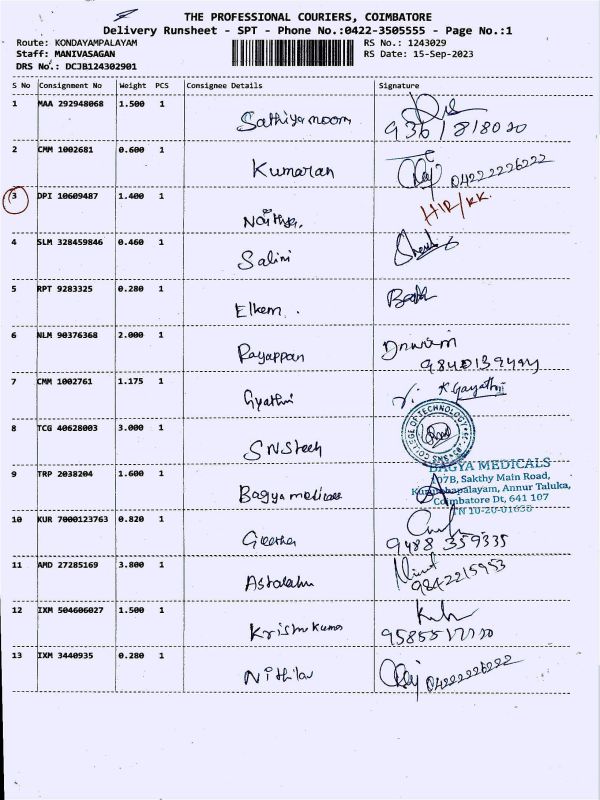 THE PROFESSIONAL COURIERS, COIMBATORE
Delivery Runsheet - SPT - Phone No.:0422-3505555 - Page No.:1
Route: KONDAYAMPALAYAM
RS No.: 1243029
Staff: MANIVASAGAN
RS Date: 15-Sep-2023
DRS No.: DCJB124302901
S No Consignment No Weight PCS Consignee Details Signature
1 MAA 292948068 1.500 1 Sathiyamoom
2 CMM 1002681 0.600 1 Kumaran 04222226222
3 DPI 10609487 1.400 1 Nithya. HIR/KK.
4 SLM 328459846 0.460 1 Salini
5 RPT 9283325 0.280 1 Elkem.
6 NLM 90376368 2.000 1 Rayappan
7 CMM 1002761 1.175 1 Gyathri K. Gayathri
8 TCG 40628003 3.000 1 SNStech
COLLEGE OF TECHNOLOGY
9 TRP 2038204 1.600 1 Bagya medicals
BAGYA MEDICALS
107B, Sakthy Main Road,
Annur Taluka,
Coimbatore Dt, 641 107
10 KUR 7000123763 0.820 1 Geetha
9488 359335
11 AMD 27285169 3.800 1
9842215953
12 IXM 504606027 1.500 1 Krishnakumar
13 IXM 3440935 0.280 1 Nithila 04222226222